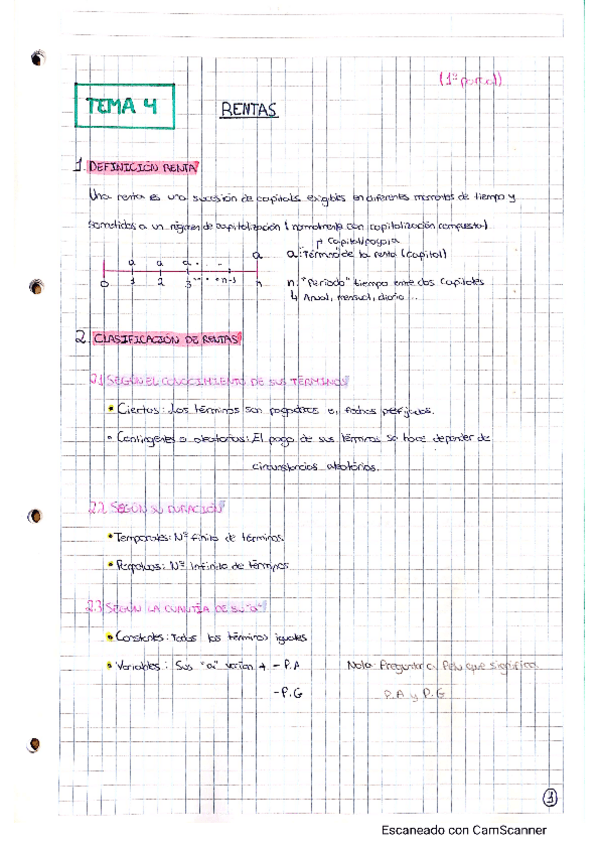 (1ª parcial)
TEMA 4
RENTAS
1. DEFINICIÓN RENTA
Una renta es una sucesión de capitales exigibles en diferentes momentos de tiempo y
sometidos a un régimen de capitalización (normalmente con capitalización compuesta)
Capital/pagara
a a a . . - a
a: Término de la renta (capital)
0 1 2 3 ... n-1 n
n: "Periodo" tiempo entre dos capitales
↳ Anual, mensual, diario...
2. CLASIFICACIÓN DE RENTAS
2.1 SEGÚN EL CONOCIMIENTO DE SUS TÉRMINOS
• Ciertos: Los términos son pagaderos en fechas prefijadas.
• Contingentes o aleatorios: El pago de sus términos se hace depender de
circunstancias aleatorias.
2.2 SEGÚN SU DURACIÓN
• Temporales: Nº finito de términos.
• Perpetuas: Nº Infinito de términos
2.3 SEGÚN LA CUANTÍA DE SU "a"
• Constantes: Todos los términos iguales
• Variables: Sus "a" varían → - P.A
Nota: Preguntar a Pelu que significa
- P.G
P.A y P.G
1
Escaneado con CamScanner